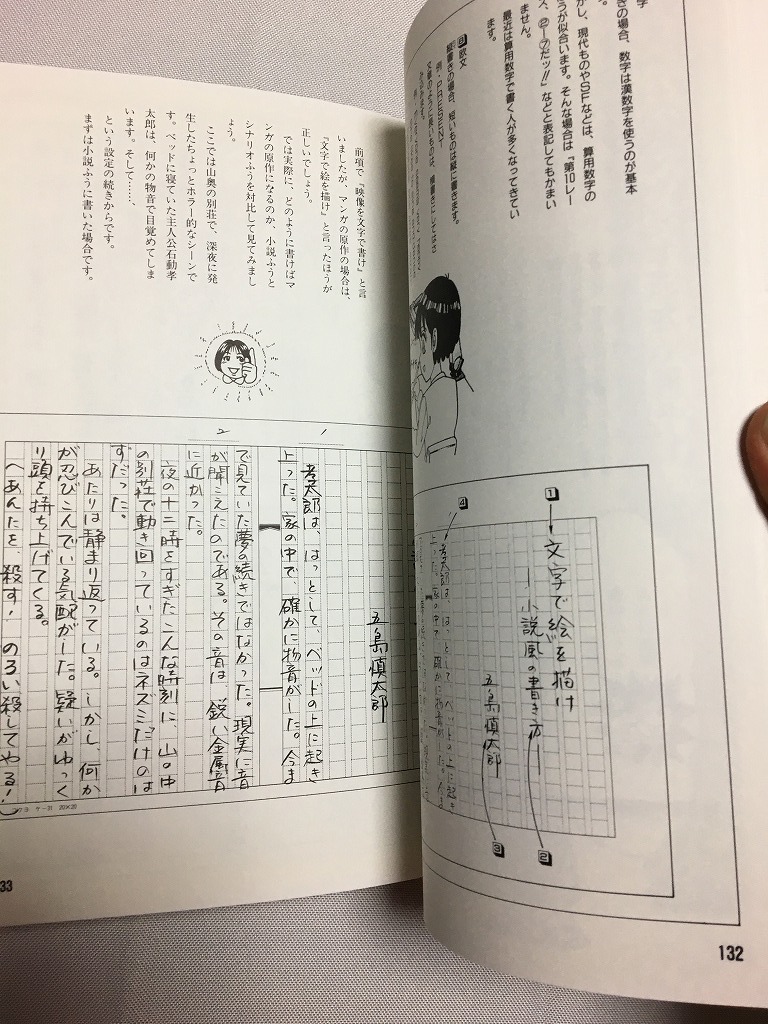 字
きの場合、数字は漢数字を使うのが基本
かし、現代ものやSFなどは、算用数字の
うが似合います。そんな場合は『第10レー
ス、②—⑦だッ!!』などと表記してもかまい
ません。
最近は算用数字で書く人が多くなってきてい
ます。
欧文
縦書きの場合、短いものは縦に書きます。
例・PRESENT
文章のように長いものは、横書きにしてはさ
1
文字で絵を描け
2
—小説風の書き方—
3
五島慎太郎
4
孝太郎は、はっとして、ベッドの上に起き
上った。家の中で、確かに物音がした。今ま
132
前項で『映像を文字で書け』と言
いましたが、マンガの原作の場合は、
『文字で絵を描け』と言ったほうが
正しいでしょう。
では実際に、どのように書けばマ
ンガの原作になるのか、小説ふうと
シナリオふうを対比して見てみまし
ょう。
ここでは山奥の別荘で、深夜に発
生したちょっとホラー的なシーンで
す。ベッドに寝ていた主人公石動孝
太郎は、何かの物音で目覚めてしま
います。そして……、
という設定の続きからです。
まずは小説ふうに書いた場合です。
五島慎太郎
1
孝太郎は、はっとして、ベッドの上に起き
上った。家の中で、確かに物音がした。今ま
で見ていた夢の続きではなかった。現実に音
2
が聞こえたのである。その音は、鋭い金属音
に近かった。
夜の十二時をすぎたこんな時刻に、山の中
の別荘で動き回っているのはネズミだけのは
ずだった。
あたりは静まり返っている。しかし、何か
が忍びこんでいる気配がした。疑いがゆっく
り頭を持ち上げてくる。
〈あんたを、殺す! のろい殺してやる!〉
ケー31 20×20
33